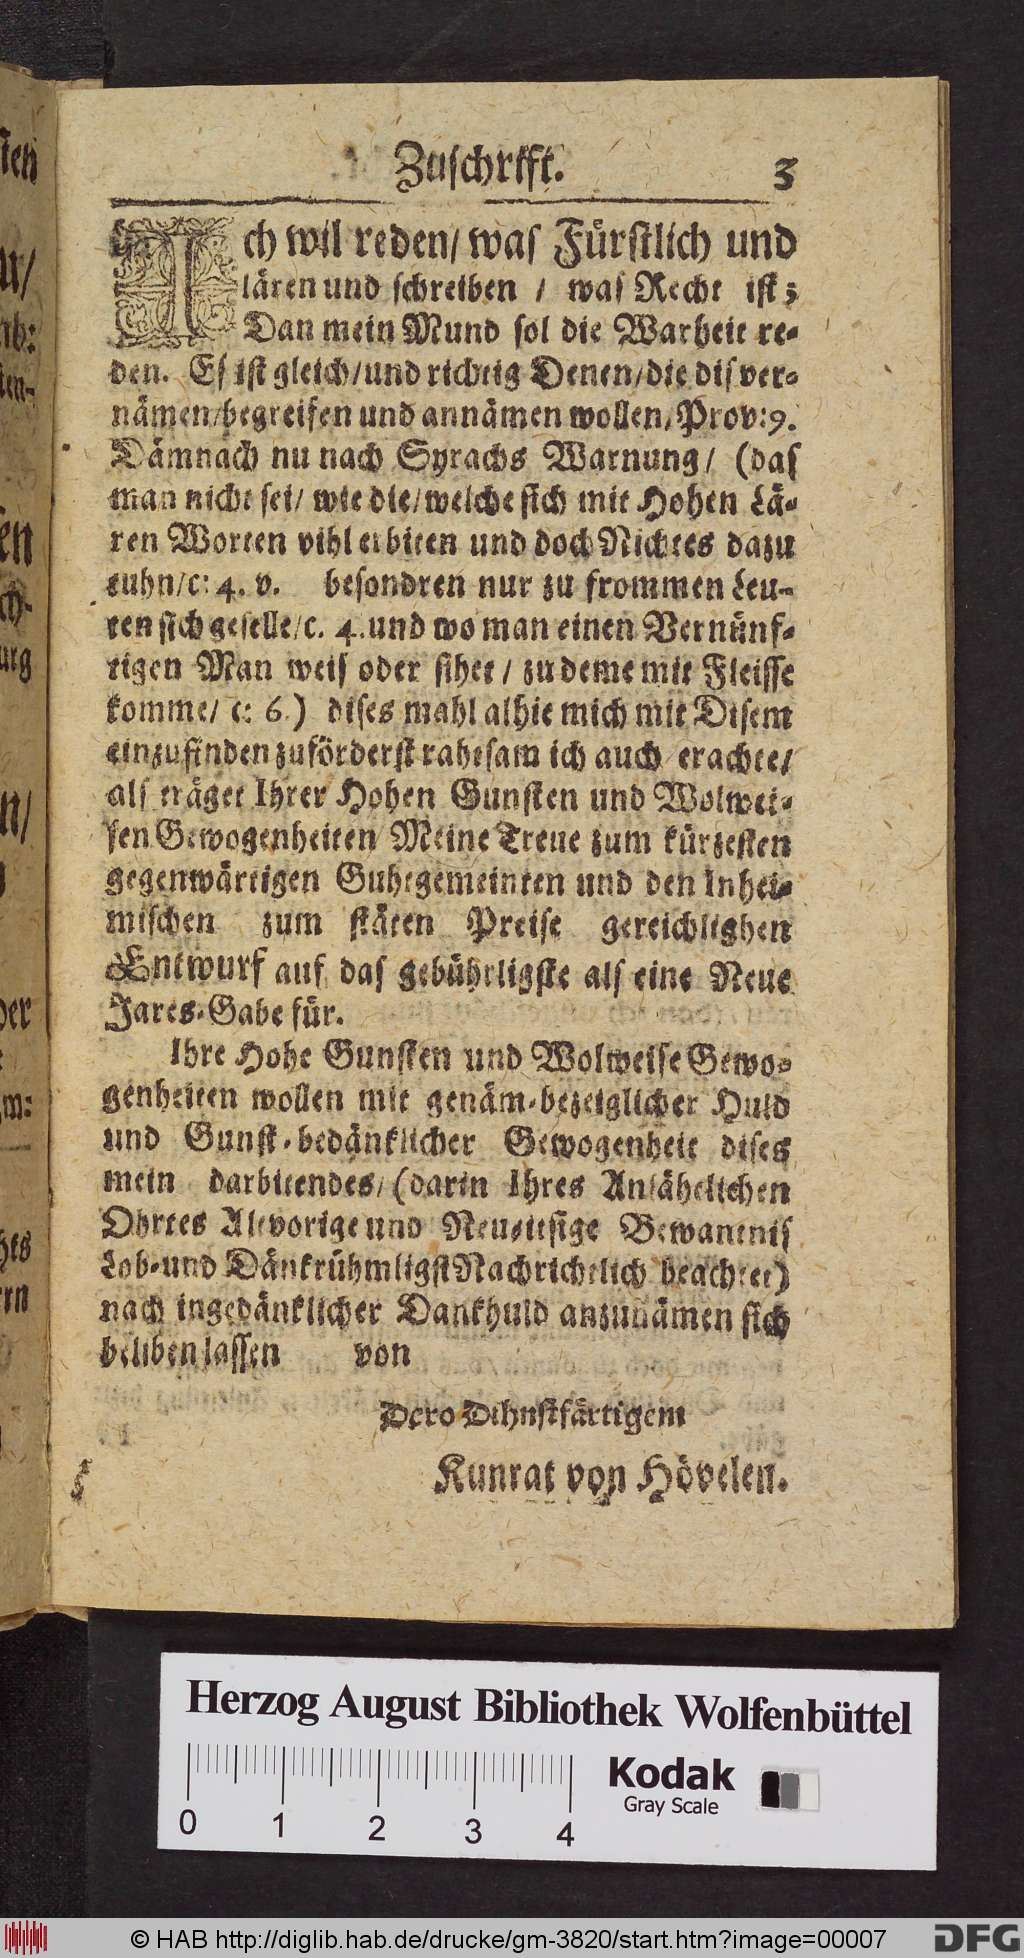 Zuschrift. 3
Ich wil reden/ was Fürstlich und
lären und schreiben / was Recht ist;
Dan mein Mund sol die Warheit re-
den. Es ist gleich/und richtig Denen/die dis ver-
nämen/begreifen und annämen wollen/Prov:9.
Dämnach nu nach Syrachs Warnung/ (das
man nicht sei/ wie die/welche sich mit Hohen Lä-
ren Worten vihl erbiten und doch Nichtes dazu
tuhn/c: 4. v. besondren nur zu frommen Leu-
ten sich geselle/c. 4. und wo man einen Vernünf-
tigen Man weis oder sihet / zu deme mit Fleisse
komme/ c: 6.) dises mahl alhie mich mit Disem
einzufinden zuförderst rahtsam ich auch erachte/
als träget Ihrer Hohen Gunsten und Wolwei-
sen Gewogenheiten Meine Treue zum kürzesten
gegenwärtigen Guhtgemeinten und den Inhei-
mischen zum stäten Preise gereichlighen
Entwurf auf das gebührligste als eine Neue
Jares-Gabe für.
Ihre Hohe Gunsten und Wolweise Gewo-
genheiten wollen mit genäm-bezeiglicher Huld
und Gunst-bedänklicher Gewogenheit dises
mein darbitendes/ (darin Ihres Ansähelichen
Ohrtes Altvorige und Neuitsige Bewantnis
Lob-und Dänkrühmligst Nachrichtlich beachtet)
nach ingedänklicher Dankhuld anzunämen sich
beliben lassen von
Dero Dihnstfärtigem
Kunrat von Hövelen.
Herzog August Bibliothek Wolfenbüttel
0 1 2 3 4
Kodak
Gray Scale
© HAB http://diglib.hab.de/drucke/gm-3820/start.htm?image=00007
DFG